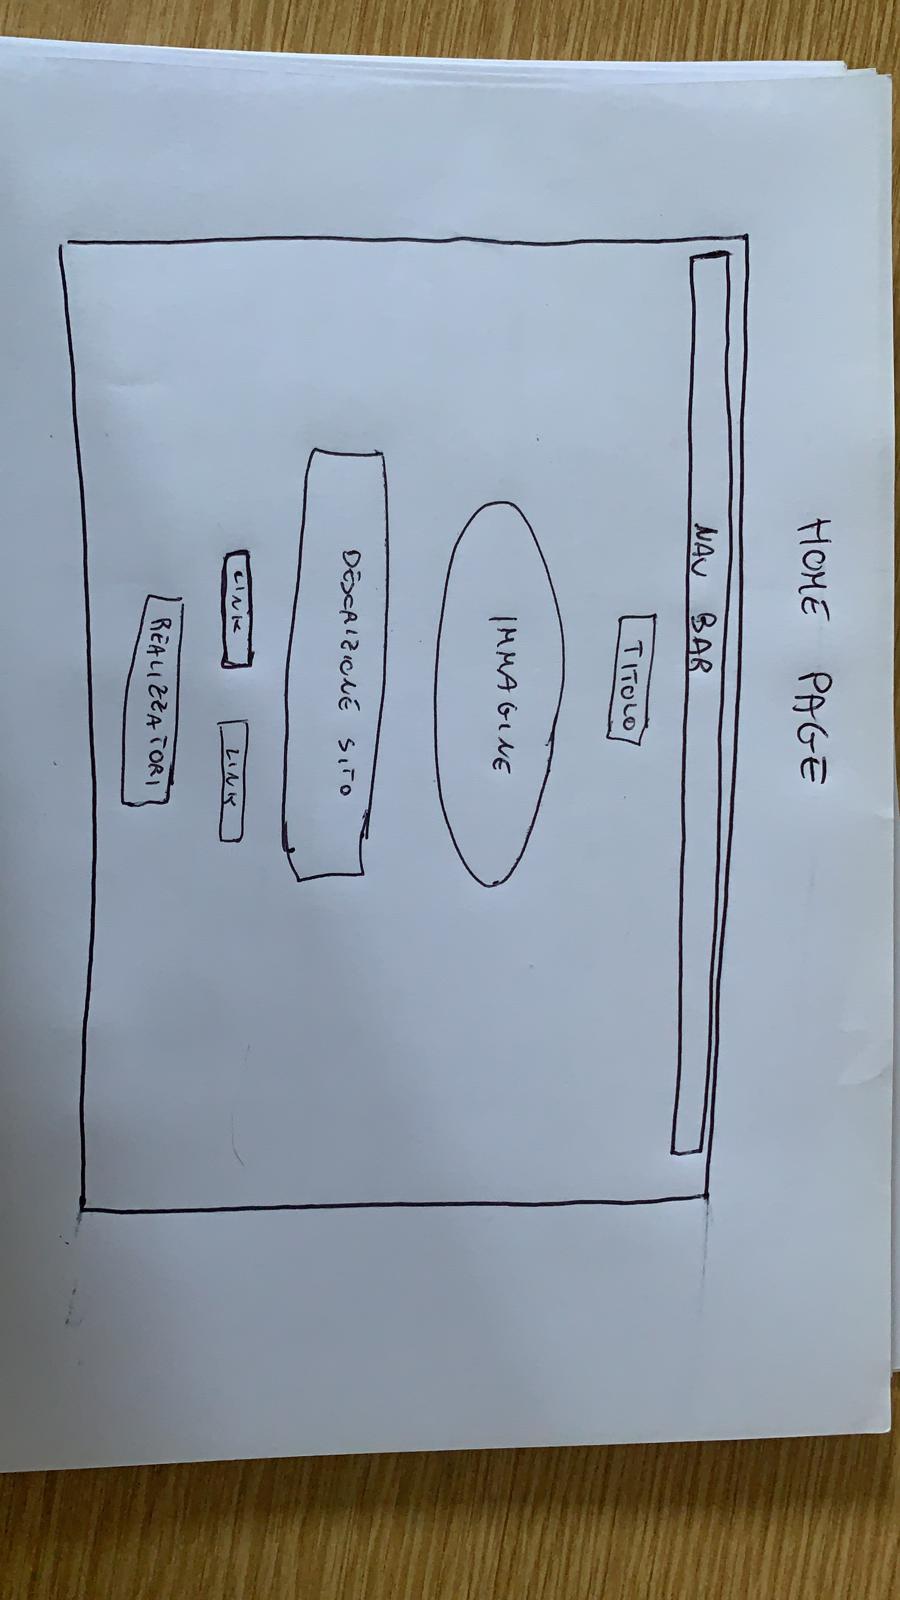 HOME PAGE
NAV BAR
TITOLO
IMMAGINE
DESCRIZIONE SITO
LINK LINK
REALIZZATORI